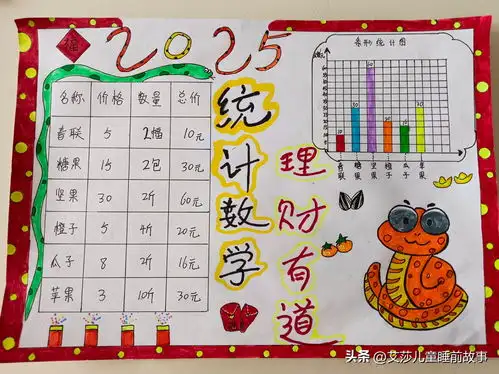 福
2025
名称 价格 数量 总价
春联 5 2幅 10元
糖果 15 2包 30元
坚果 30 2斤 60元
橙子 5 4斤 20元
瓜子 8 2斤 16元
苹果 3 10斤 30元
统计数学
理财有道
条形统计图
10 30 60 20 16 30
春联 糖果 坚果 橙子 瓜子 苹果
头条 @艾莎儿童睡前故事